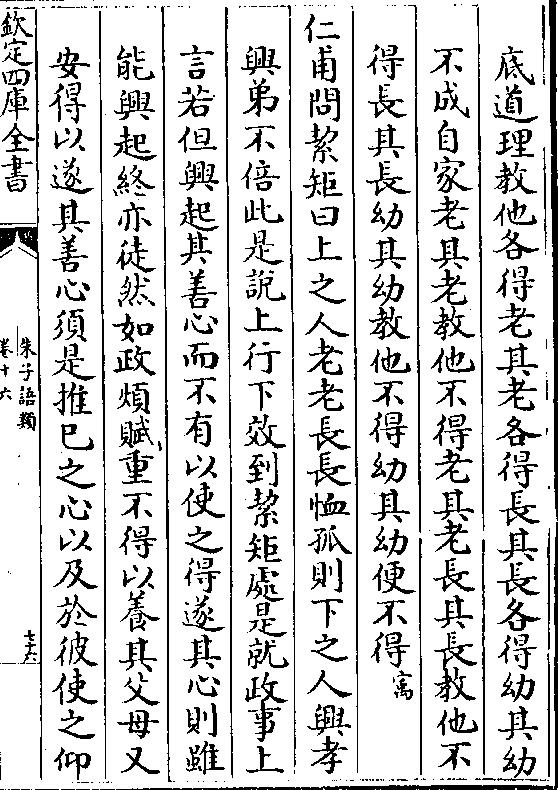 底道理教他各得老其老各得長其長各得幼其幼
不成自家老其老教他不得老其老長其長教他不
得長其長幼其幼教他不得幼其幼便不得寓
仁甫問絜矩曰上之人老老長長恤孤則下之人興孝
興弟不倍此是說上行下效到絜矩處是就政事上
言若但興起其善心而不有以使之得遂其心則雖
能興起終亦徒然如政煩賦重不得以養其父母又
安得以遂其善心須是推已之心以及於彼使之仰
欽定四庫全書
朱子語類
卷十六
七六